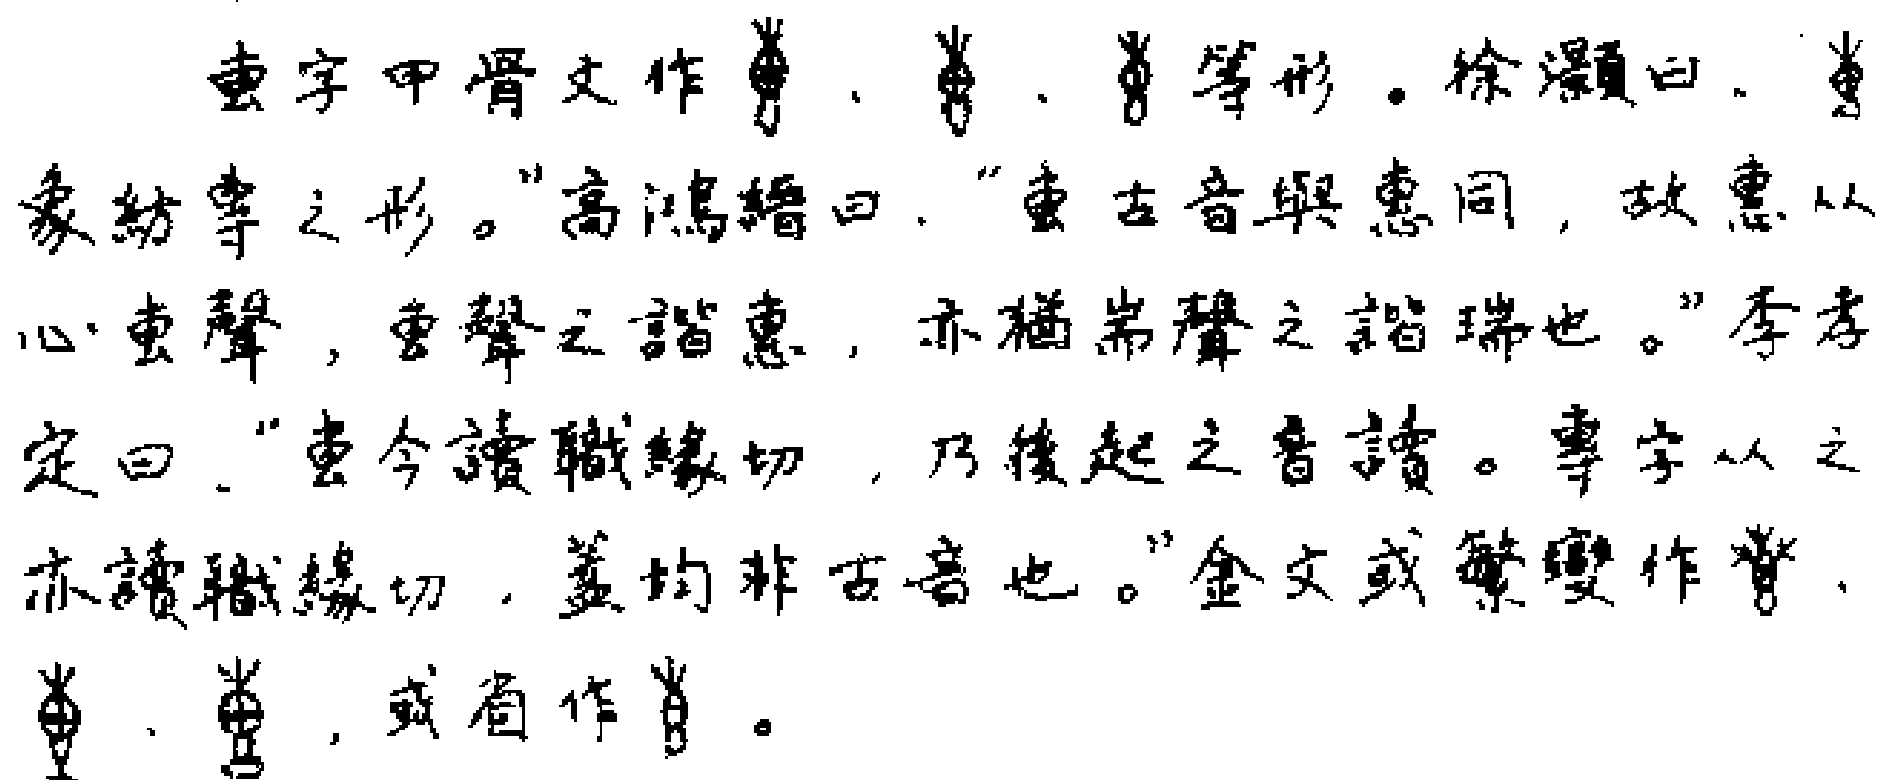 叀字甲骨文作、、等形。徐灝曰、
象紡專之形。”高鴻縉曰、“叀古音與惠同,故惠从
心叀聲,叀聲之諧惠,亦猶耑聲之諧瑞也。”李孝
定曰、“叀今讀職緣切,乃後起之音讀。專字从之
亦讀職緣切,蓋均非古音也。”金文或繁變作、
、,或省作。